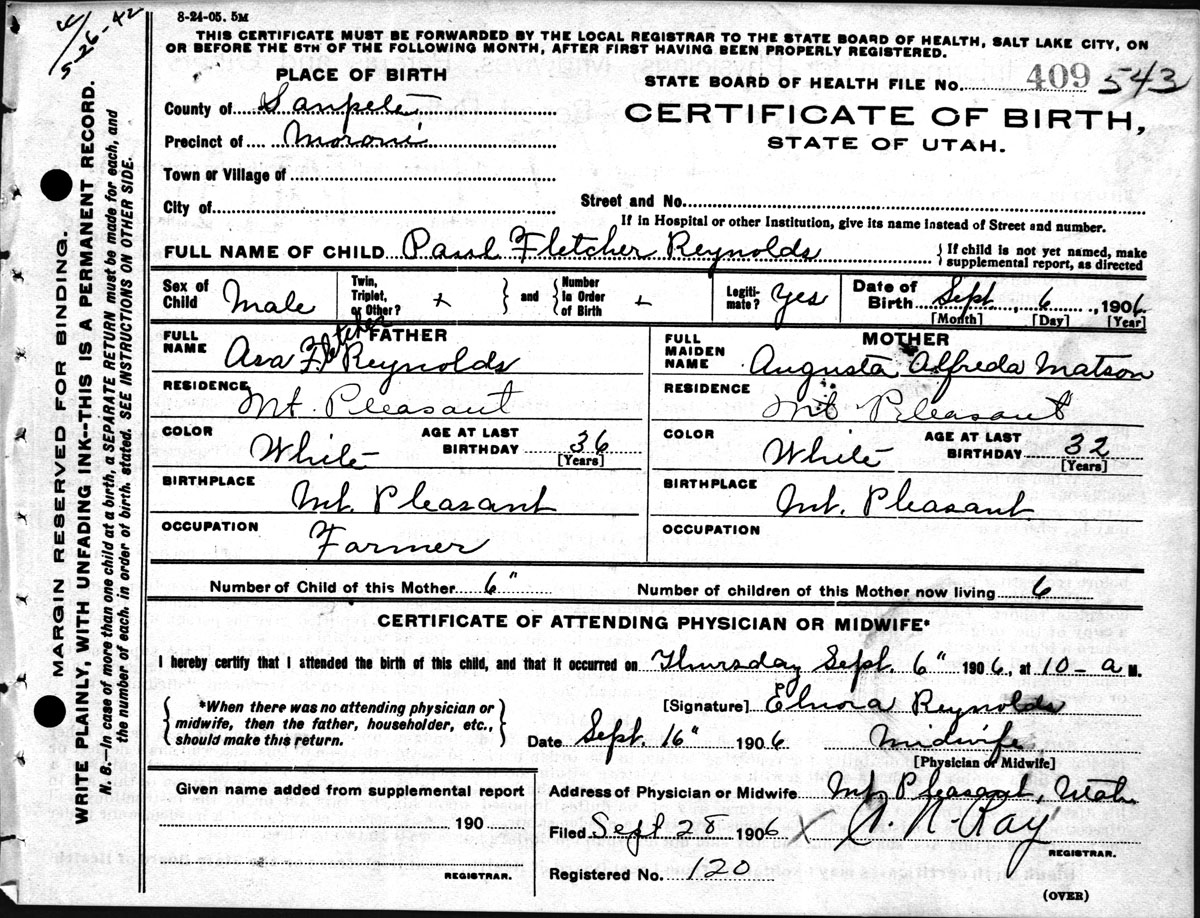 4/5-26-42
8-24-05. 5M
THIS CERTIFICATE MUST BE FORWARDED BY THE LOCAL REGISTRAR TO THE STATE BOARD OF HEALTH, SALT LAKE CITY, ON
OR BEFORE THE 5TH OF THE FOLLOWING MONTH, AFTER FIRST HAVING BEEN PROPERLY REGISTERED.
MARGIN RESERVED FOR BINDING.
WRITE PLAINLY, WITH UNFADING INK--THIS IS A PERMANENT RECORD.
N. B.—In case of more than one child at a birth, a SEPARATE RETURN must be made for each, and
the number of each, in order of birth, stated. SEE INSTRUCTIONS ON OTHER SIDE.
PLACE OF BIRTH
STATE BOARD OF HEALTH FILE No. 409 543
County of Sanpete
CERTIFICATE OF BIRTH,
Precinct of Moroni
STATE OF UTAH.
Town or Village of
City of
Street and No.
If in Hospital or other Institution, give its name instead of Street and number.
FULL NAME OF CHILD Paul Fletcher Reynolds { If child is not yet named, make supplemental report, as directed
Sex of Child Male Twin, Triplet, or Other? + } and { Number in Order of Birth + Legitimate? Yes Date of Birth Sept, 6, 1906
[Month] [Day] [Year]
FATHER
FULL NAME Asa F. Fletcher Reynolds
MOTHER
FULL MAIDEN NAME Augusta Alfreda Matson
RESIDENCE Mt. Pleasant
RESIDENCE Mt Pleasant
COLOR White AGE AT LAST BIRTHDAY 36 [Years]
COLOR White AGE AT LAST BIRTHDAY 32 [Years]
BIRTHPLACE Mt. Pleasant
BIRTHPLACE Mt. Pleasant
OCCUPATION Farmer
OCCUPATION
Number of Child of this Mother 6" Number of children of this Mother now living 6
CERTIFICATE OF ATTENDING PHYSICIAN OR MIDWIFE*
I hereby certify that I attended the birth of this child, and that it occurred on Thursday Sept. 6" 1906, at 10 - a M.
{ *When there was no attending physician or
midwife, then the father, householder, etc.,
should make this return. }
[Signature] Elnora Reynolds
Date Sept. 16" 1906 Midwife
[Physician or Midwife]
Given name added from supplemental report
190
REGISTRAR.
Address of Physician or Midwife Mt. Pleasant, Utah
Filed Sept 28 1906 X A. N. Ray
REGISTRAR.
Registered No. 120
(OVER)